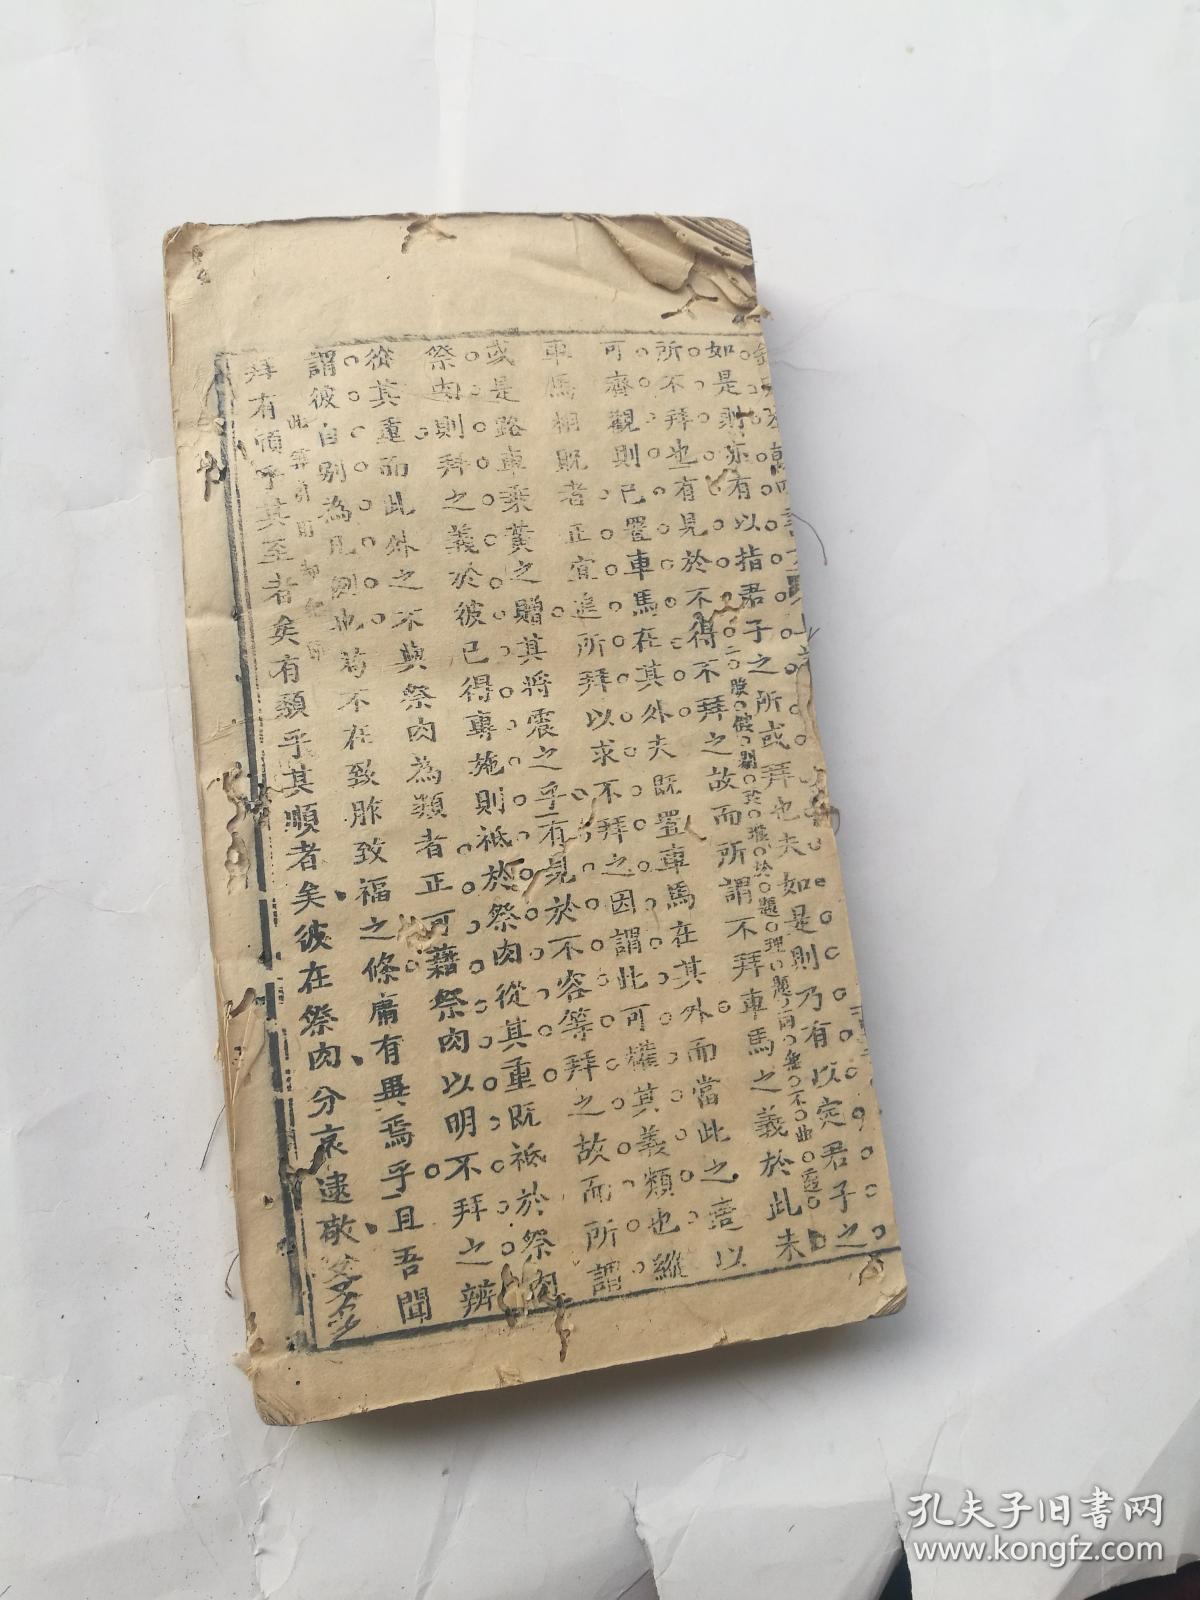 如是則亦有以指君子之所或拜也夫如是則乃有以定君子之
所不拜也有見於不得不拜之故而所謂不拜車馬之義於此未
可齊觀則已置車馬在其外夫既置車馬在其外而當此之意以
車馬相貺者正宜進所拜以求不拜之因謂此可權其義類也縱
或是路車乘黃之贈其將震之乎有見於不容等拜之故而所謂
祭肉則拜之義於彼已得專施則祗於祭肉從其重既祗於祭肉
從其重而此外之不與祭肉為類者正可藉祭肉以明不拜之辨
謂彼自別為凡例也苟不在致胙致福之條庸有異焉乎且吾聞
拜有頎乎其至者矣有顙乎其順者矣彼在祭肉分哀逮敬
孔夫子旧书网
www.kongfz.com